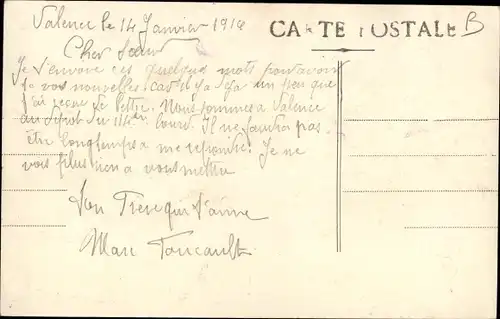 Valence le 14 Janvier 1918
CARTE POSTALE
B
Cher Sœur
Je t'envoie ces quelques mots pour avoir
de vos nouvelles car il y a déjà un peu que
j'ai reçue de lettre. Nous sommes a Valence
au Dépôt du 114em lourd. Il ne faudra pas
être longtemps a me repondre. Je ne
vois plus rien a vous mettre
Ton Frere qui t'aime
Marc Foucault